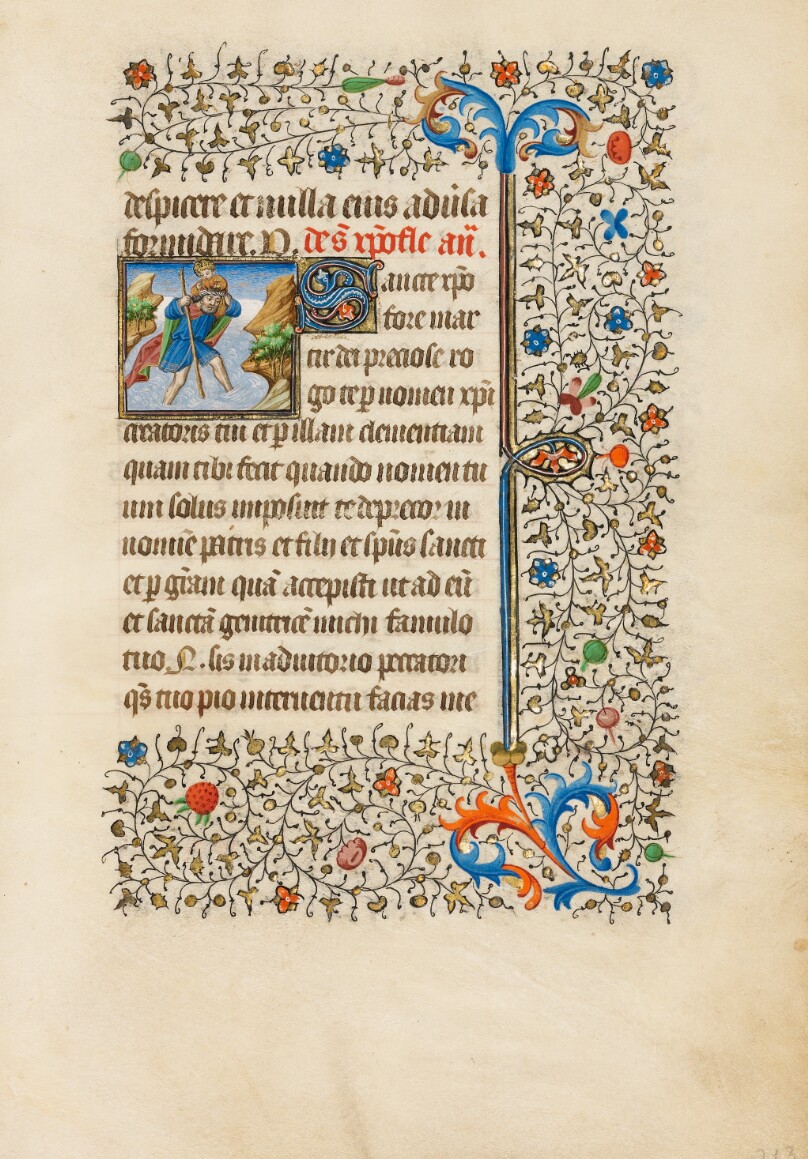 despicere et nulla eius adūsa
formidare. P. de s̄ xp̄ofle an̄.
Sancte xp̄o
fore mar
tir dei preciose ro
go te p̱ nomen xp̄i
creatoris tui et p̱ illam clementiam
quam tibi fecit quando nomen tu
um solus imposuit te deprecor in
nomīe patris et filij et sp̄us sancti
et p̱ grām̄ quā accepisti ut ad eū
et sanctā genitricē michi famulo
tuo N. sis in adiutorio peccatori
qs̄ tuo pio interuentu facias me